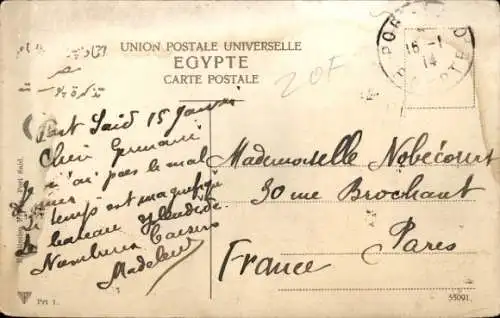 UNION POSTALE UNIVERSELLE
EGYPTE
CARTE POSTALE
20F
PORT
16-1
14
Port Said 15 Janvier
Chère Germaine
Je n'ai pas le mal
de mer
Le temps est magnifique
le bateau splendide.
Nombreux baisers
Madeleine
Mademoiselle Nobécourt
30 rue Brochant
Paris
France
Port Said.
Prt 1.
55091.